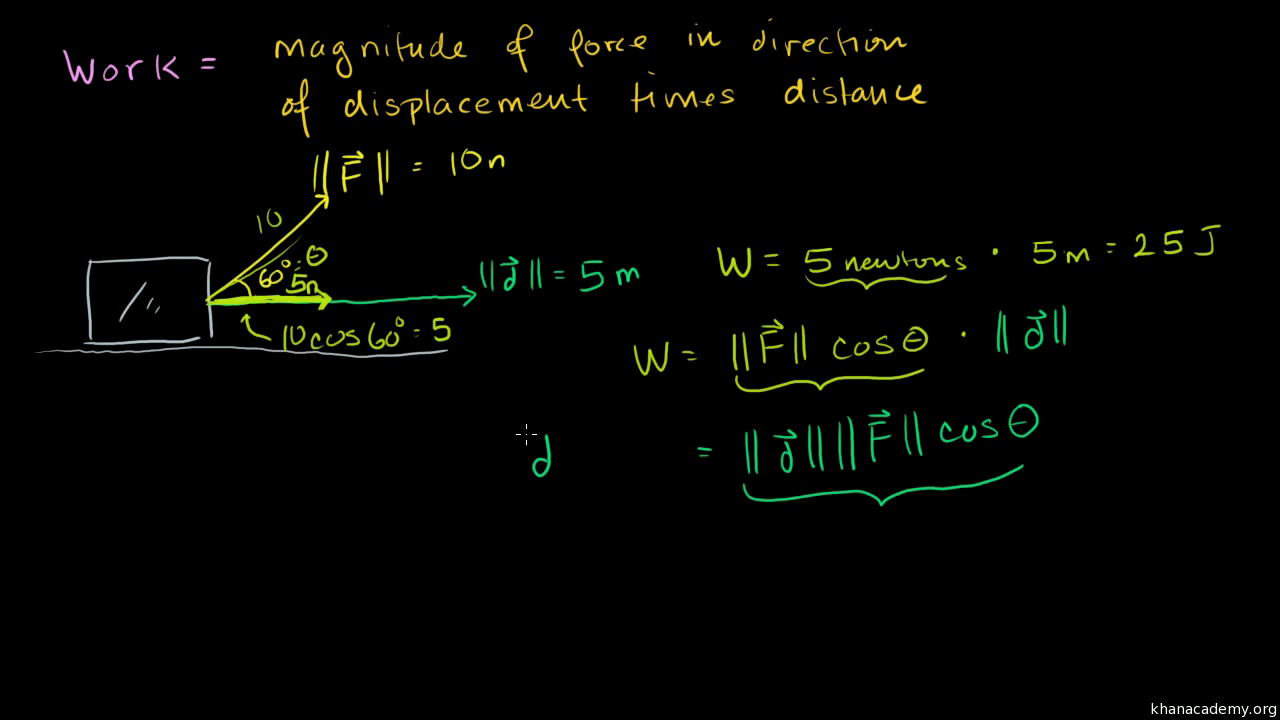 Work = magnitude of force in direction
of displacement times distance
||F⃗|| = 10n
10
60° = θ
5n
||d⃗|| = 5 m
10cos60° = 5
W = 5 newtons · 5m = 25 J
W = ||F⃗|| cosθ · ||d⃗||
d = ||d⃗|| ||F⃗|| cosθ
khanacademy.org